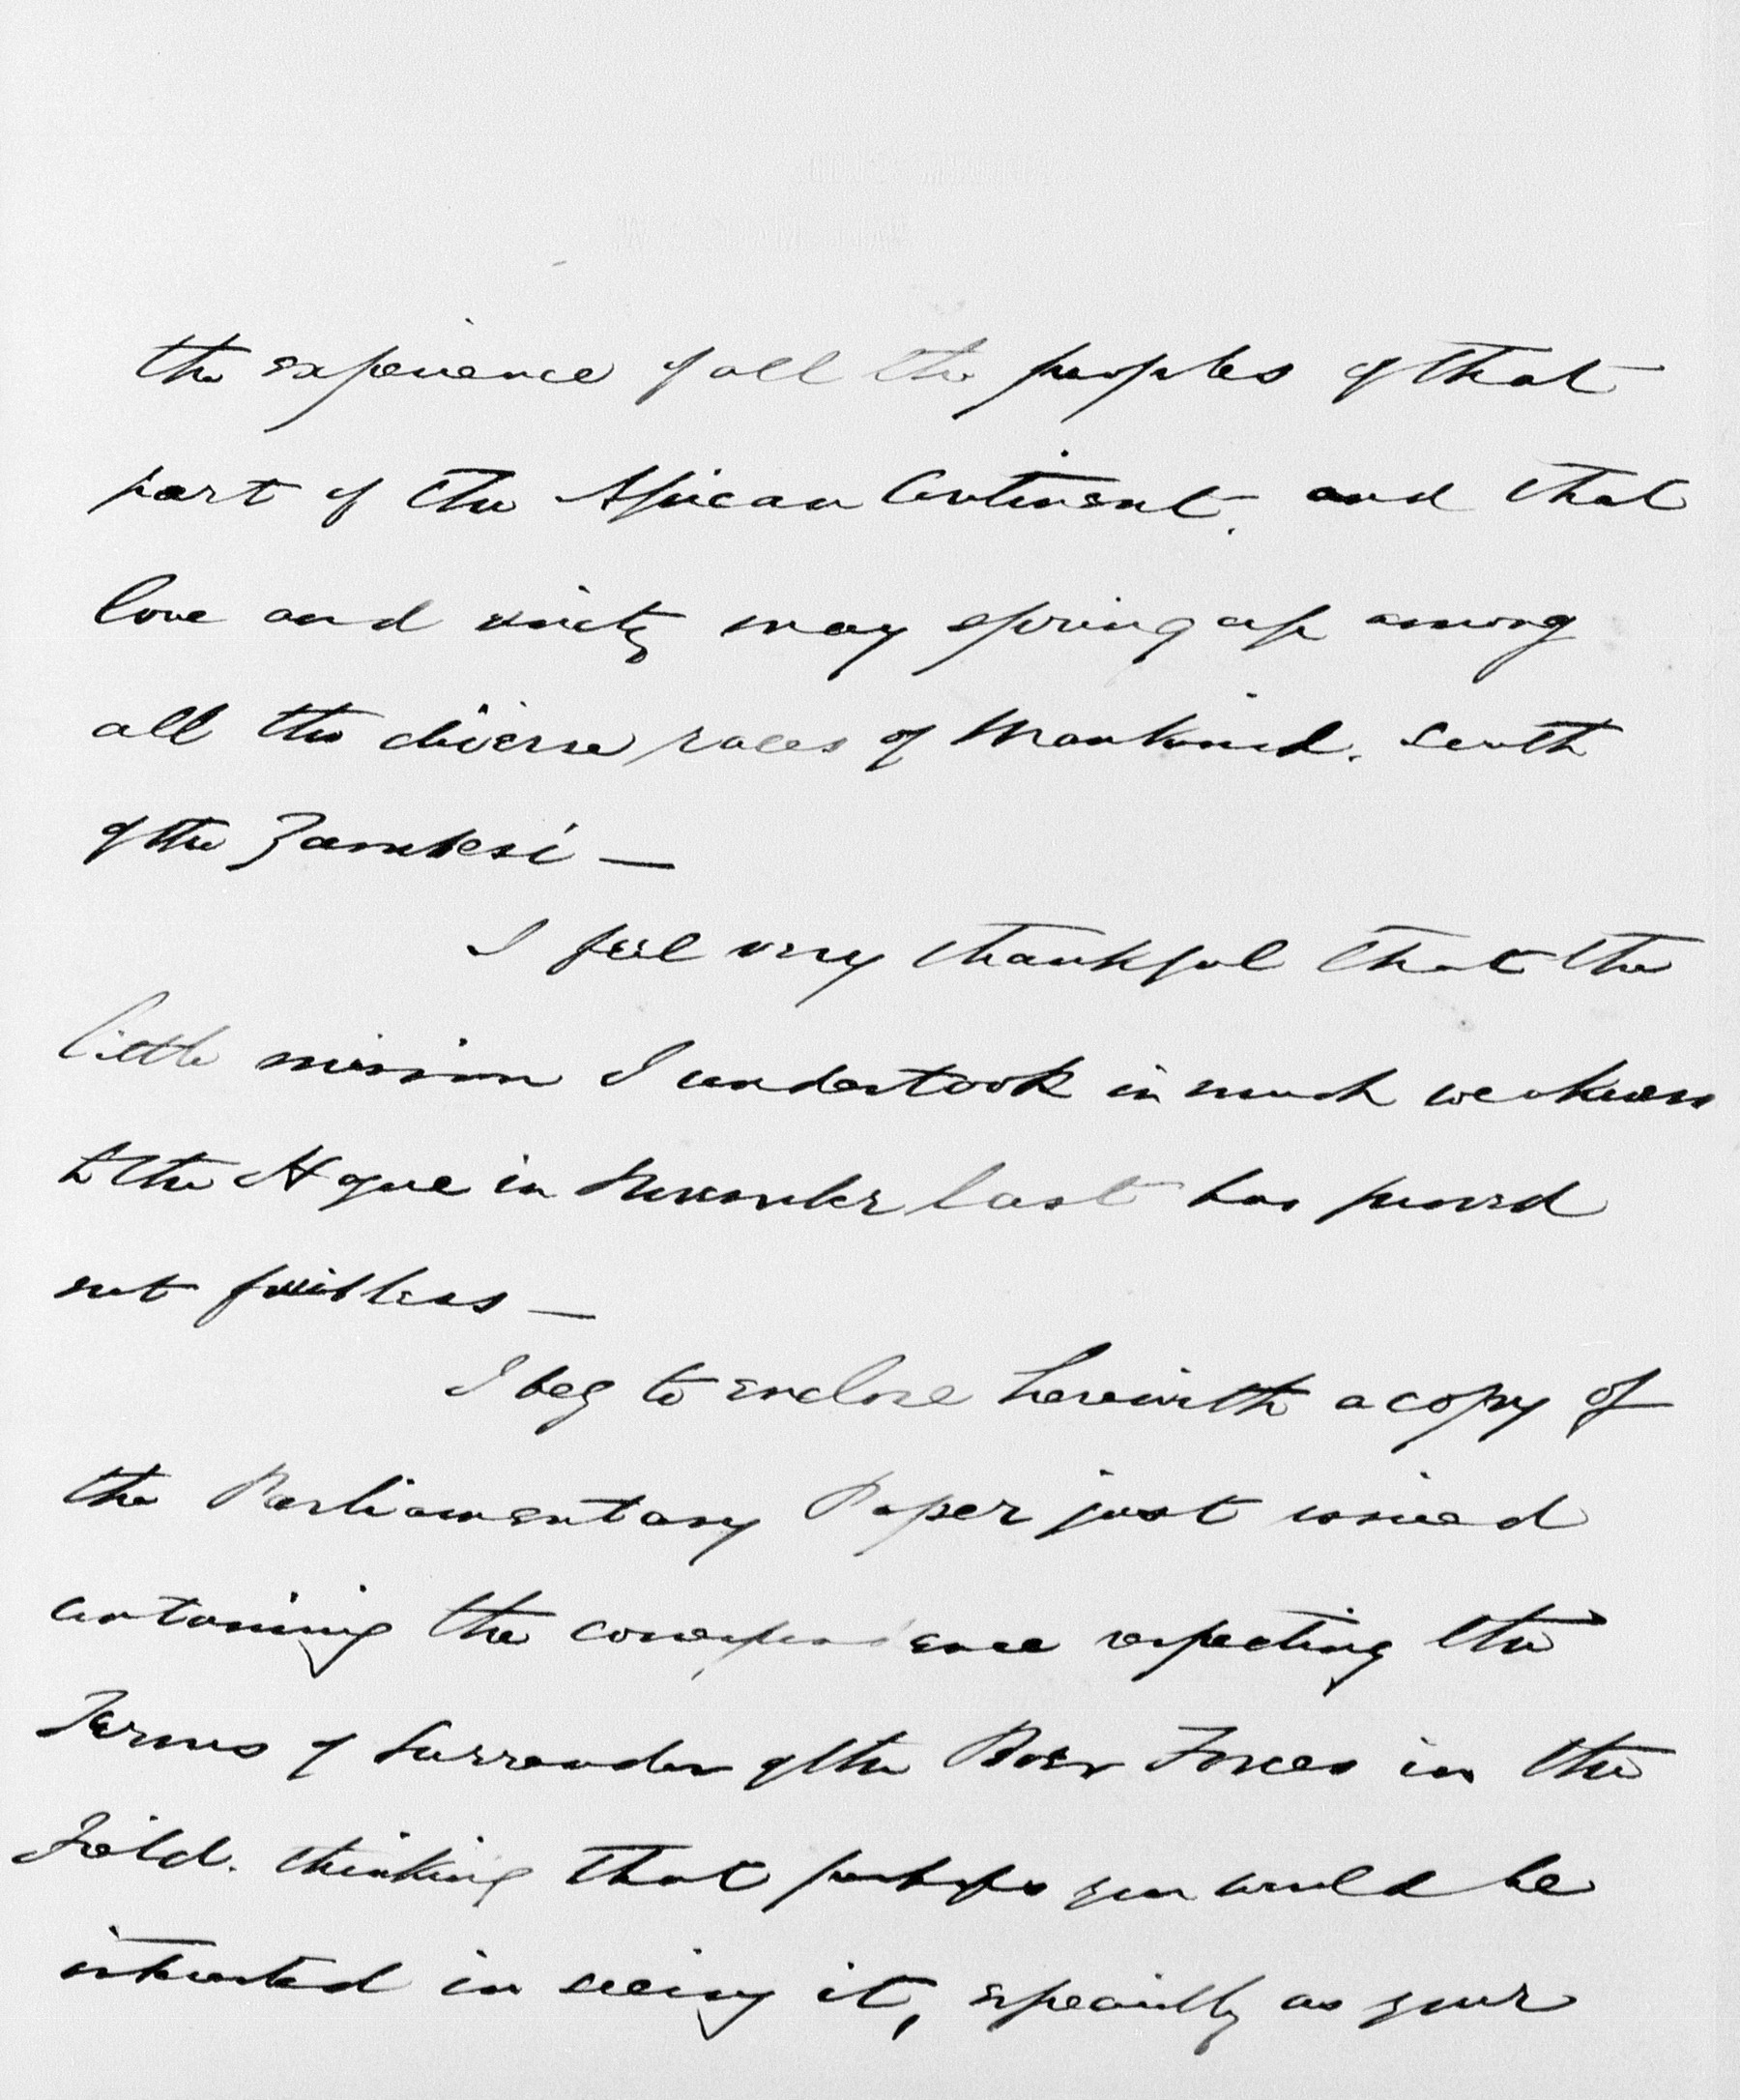 the experience of all the peoples of that
part of the African Continent, and that
love and unity may spring up among
all the diverse races of Mankind, South
of the Zambesi —
I feel very thankful that the
little mission I undertook in much weakness
to the Hague in November last has proved
not fruitless —
I beg to enclose herewith a copy of
the Parliamentary Paper just issued
containing the correspondence respecting the
Terms of Surrender of the Boer Forces in the
Field. thinking that perhaps you would be
interested in seeing it, especially as your